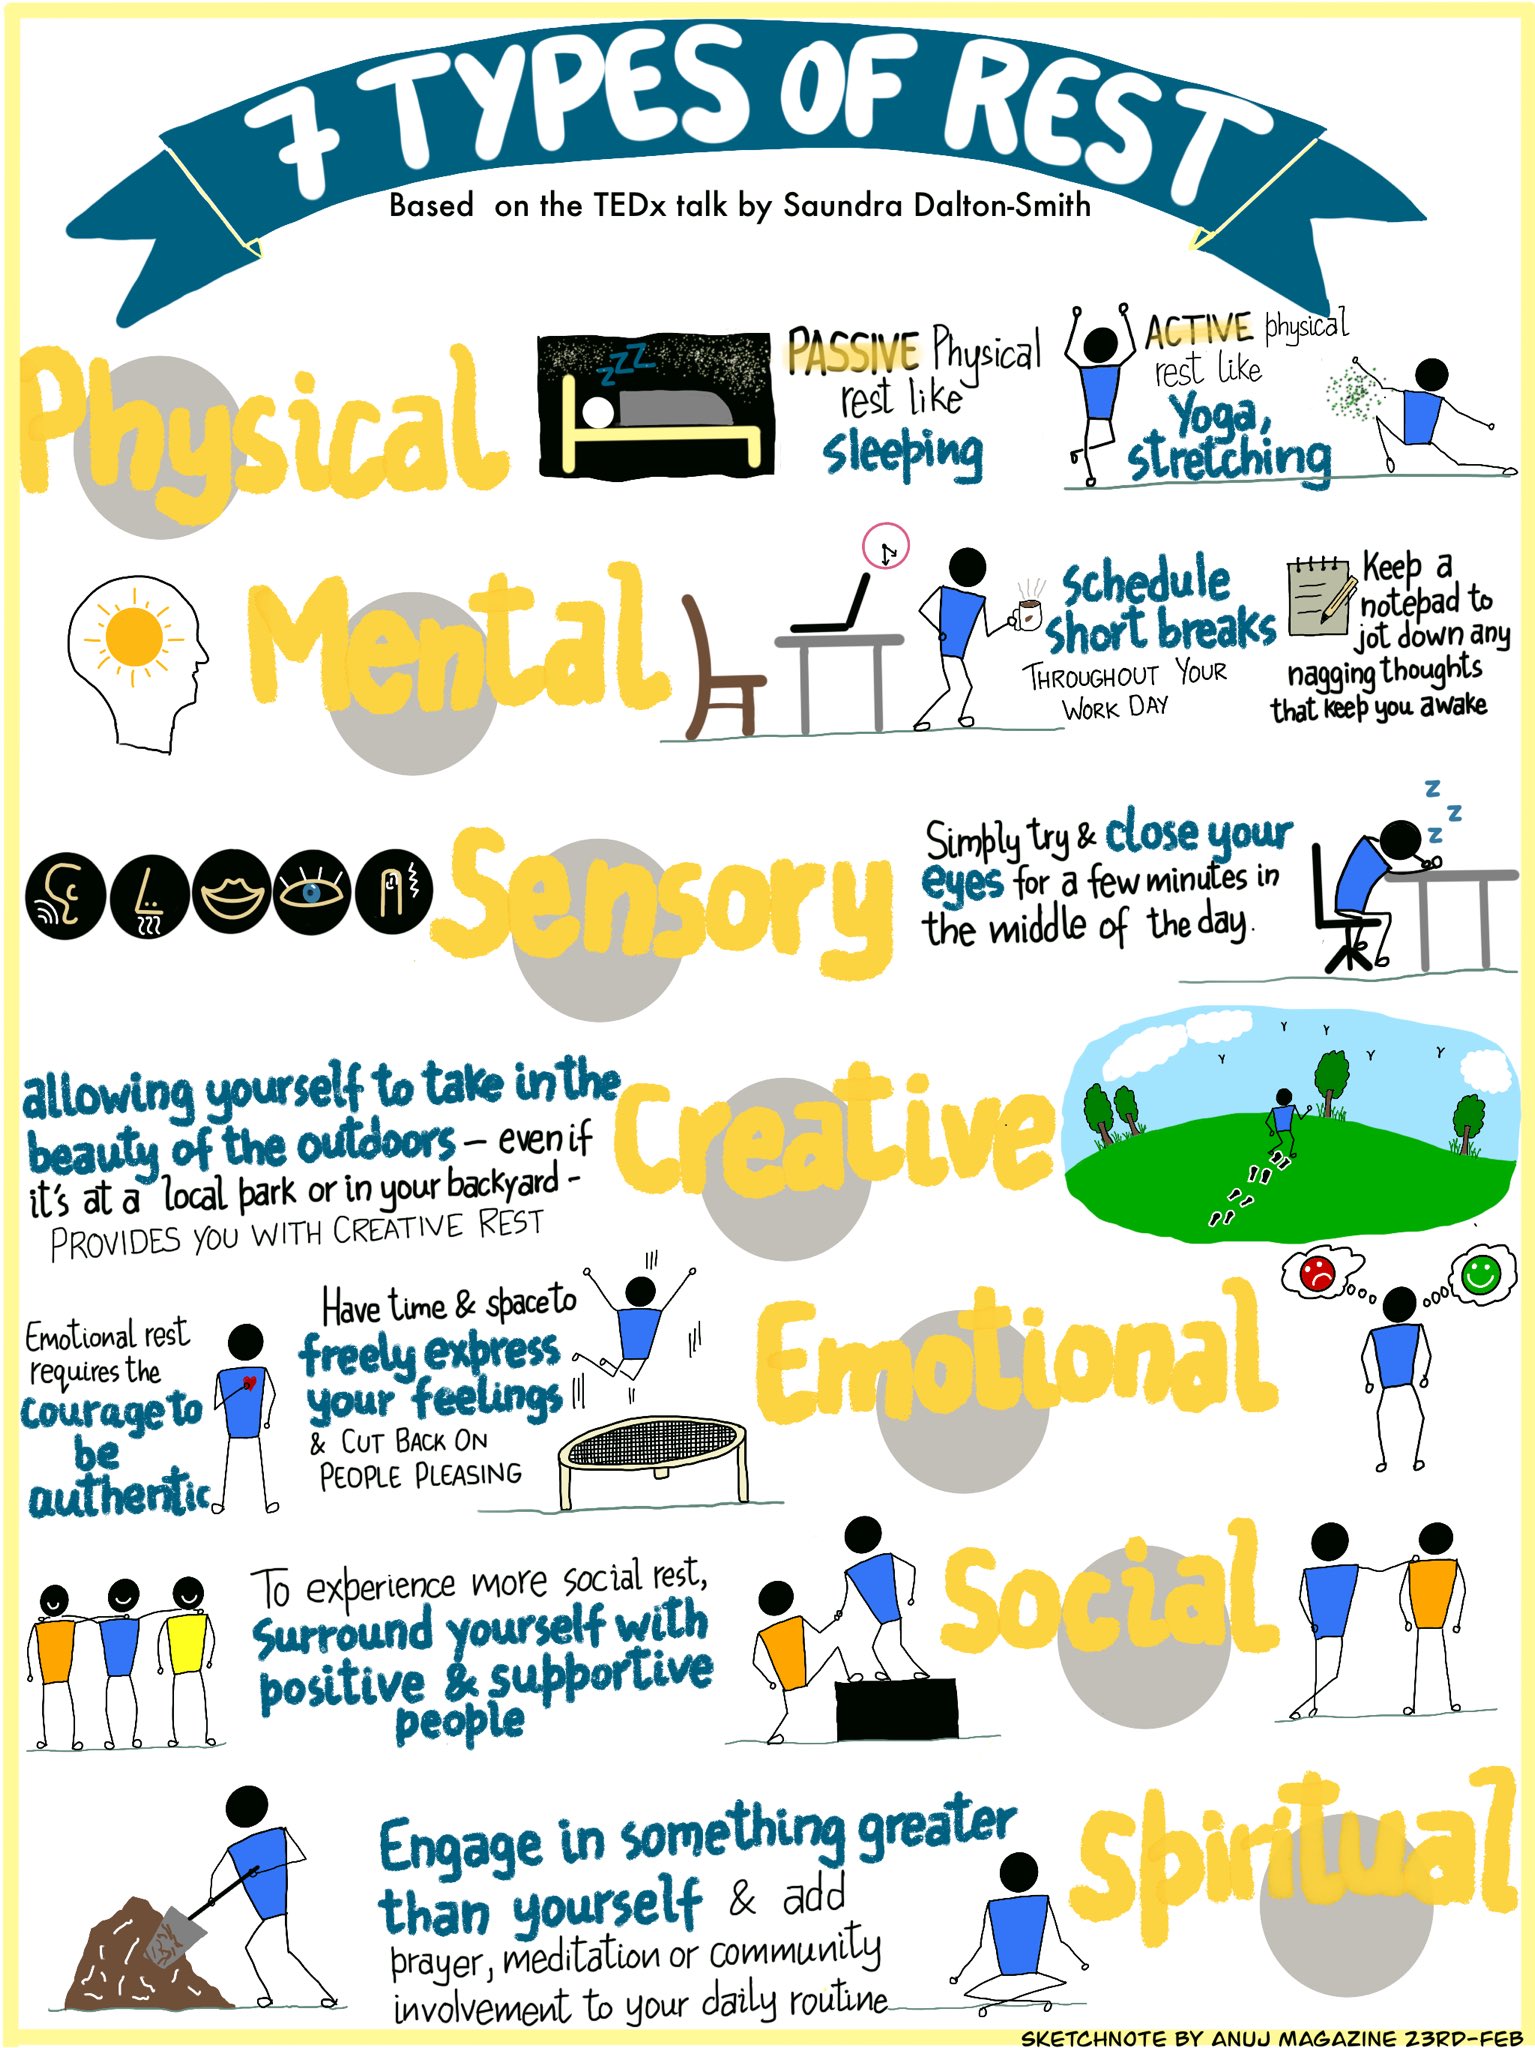 7 TYPES OF REST
Based on the TEDx talk by Saundra Dalton-Smith
Physical
zzz
PASSIVE Physical
rest like
sleeping
ACTIVE physical
rest like
Yoga,
stretching
Mental
Schedule
short breaks
THROUGHOUT YOUR
WORK DAY
Keep a
notepad to
jot down any
nagging thoughts
that keep you awake
Sensory
Simply try & close your
eyes for a few minutes in
the middle of the day.
z
z
z
allowing yourself to take in the
beauty of the outdoors – even if
it's at a local park or in your backyard -
PROVIDES YOU WITH CREATIVE REST
Creative
Emotional rest
requires the
courage to
be
authentic
Have time & space to
freely express
your feelings
& CUT BACK ON
PEOPLE PLEASING
Emotional
To experience more social rest,
Surround yourself with
positive & supportive
people
Social
Engage in something greater
than yourself & add
prayer, meditation or community
involvement to your daily routine
Spiritual
SKETCHNOTE BY ANUJ MAGAZINE 23RD-FEB